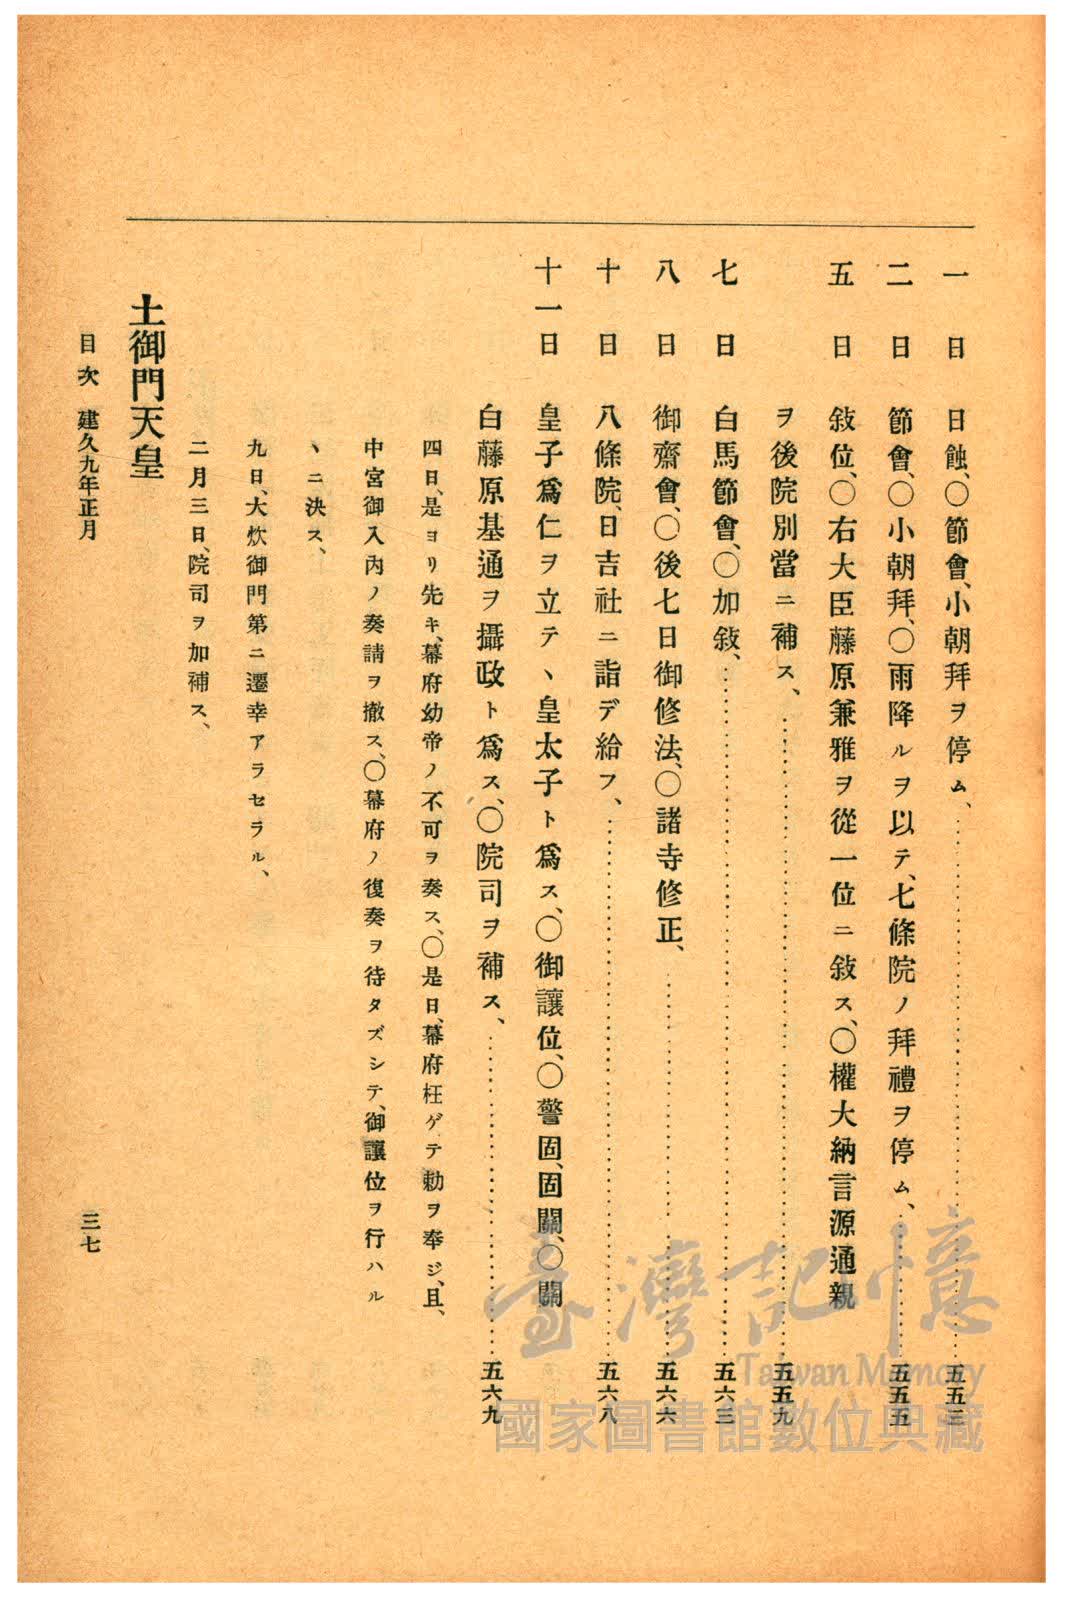 一日　日蝕、〇節會、小朝拜ヲ停ム、……五五三
二日　節會、〇小朝拜、〇雨降ルヲ以テ、七條院ノ拜禮ヲ停ム、……五五五
五日　敍位、〇右大臣藤原兼雅ヲ從一位ニ敍ス、〇權大納言源通親
ヲ後院別當ニ補ス、……五五九
七日　白馬節會、〇加敍、……五六三
八日　御齋會、〇後七日御修法、〇諸寺修正、……五六六
十日　八條院、日吉社ニ詣デ給フ、……五六八
十一日　皇子爲仁ヲ立テヽ皇太子ト爲ス、〇御讓位、〇警固、固關、〇關
白藤原基通ヲ攝政ト爲ス、〇院司ヲ補ス、……五六九
四日、是ヨリ先キ、幕府幼帝ノ不可ヲ奏ス、〇是日、幕府枉ゲテ勅ヲ奉ジ、且、
中宮御入內ノ奏請ヲ撤ス、〇幕府ノ復奏ヲ待タズシテ、御讓位ヲ行ハル
ヽニ決ス、
九日、大炊御門第ニ遷幸アラセラル、
二月三日、院司ヲ加補ス、
土御門天皇
目次　建久九年正月　三七
臺灣記憶
Taiwan Memory
國家圖書館數位典藏